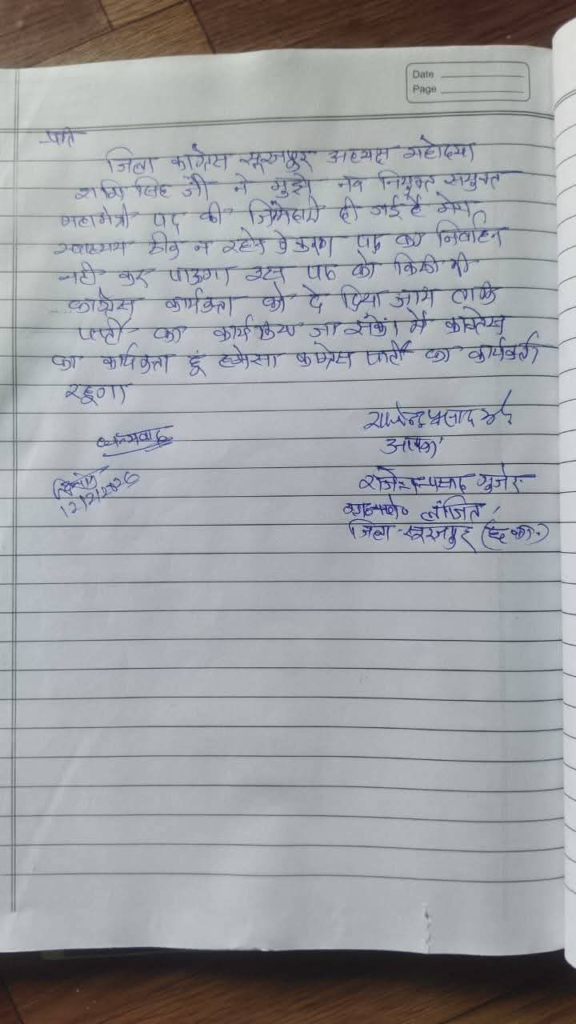 Date
Page
प्रति
जिला कांग्रेस सूरजपुर अध्यक्ष महोदया
शशि सिंह जी ने मुझे नव नियुक्त संयुक्त
महामंत्री पद की जिम्मेदारी दी गई है मेरा
स्वास्थ्य ठीक न रहने के कारण पद का निर्वाहन
नही कर पाऊगा इस पद को किसी भी
कांग्रेस कार्यकर्ता को दे दिया जाय ताकि
पार्टी का कार्य किया जा सके। मैं कांग्रेस
का कार्यकर्ता हूं हमेसा कांग्रेस पार्टी का कार्यकर्ता
रहूगा
धन्यवाद
दिनाँक
12/2/2026
राजेन्द्र प्रसाद
आपका
राजेन्द्र प्रसाद गुर्जर
जिला-सूरजपुर (छ.ग.)